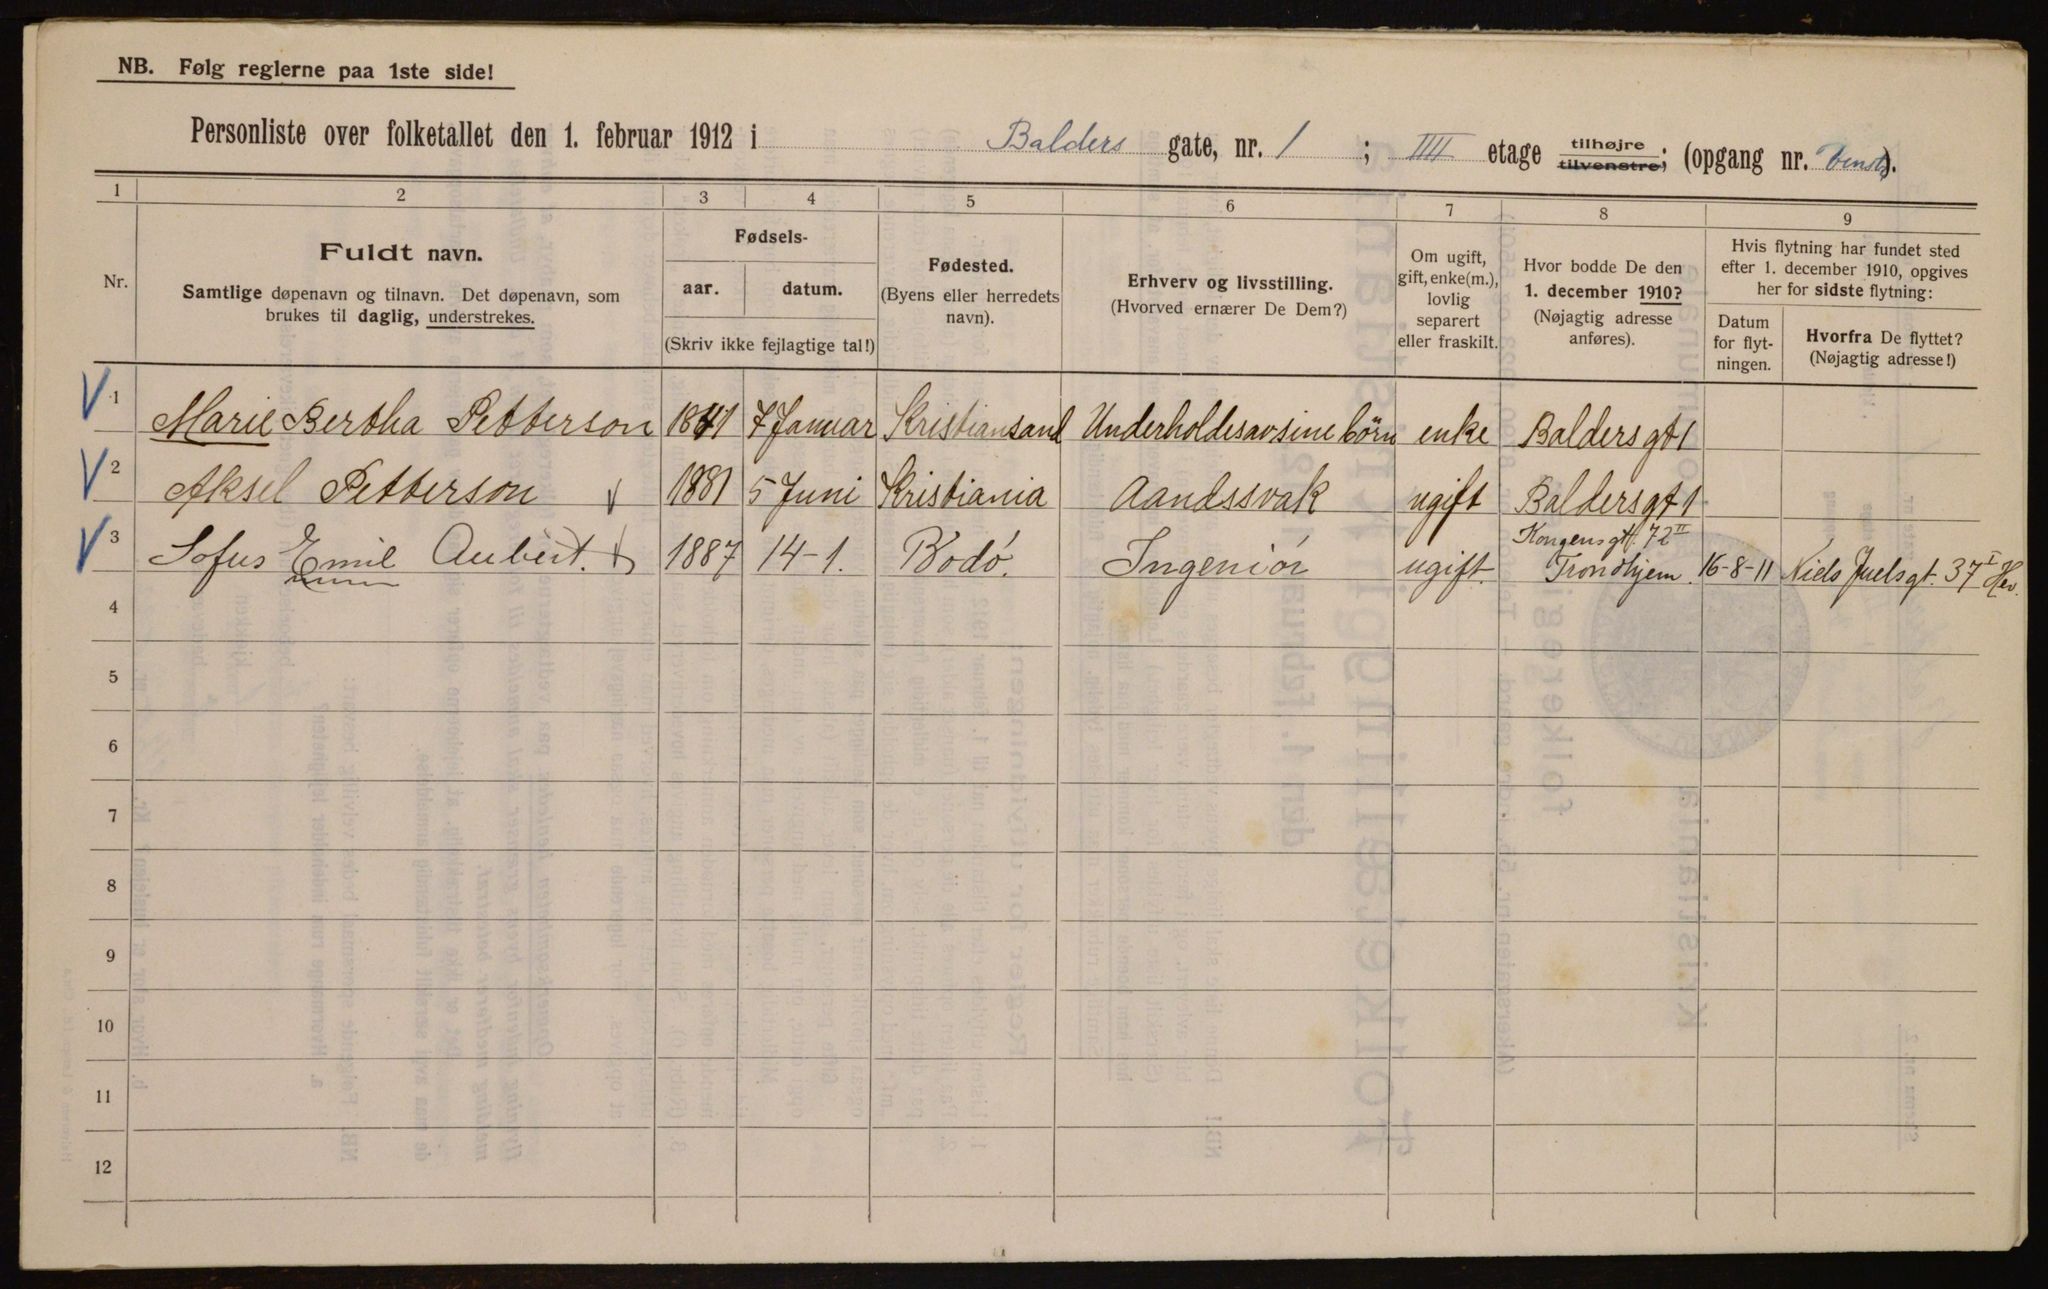 NB. Følg reglerne paa 1ste side!
Personliste over folketallet den 1. februar 1912 i Balders gate, nr. 1; IIII etage tilhøjre tilvenstre; (opgang nr. ).
1 2 3 4 5 6 7 8 9
Nr.
Fuldt navn.
Samtlige døpenavn og tilnavn. Det døpenavn, som
brukes til daglig, understrekes.
Fødsels-
aar. datum.
(Skriv ikke fejlagtige tal!)
Fødested.
(Byens eller herredets
navn).
Erhverv og livsstilling.
(Hvorved ernærer De Dem?)
Om ugift,
gift, enke(m.),
lovlig
separert
eller fraskilt.
Hvor bodde De den
1. december 1910?
(Nøjagtig adresse
anføres).
Hvis flytning har fundet sted
efter 1. december 1910, opgives
her for sidste flytning:
Datum
for flyt-
ningen.
Hvorfra De flyttet?
(Nøjagtig adresse!)
1 Marie Bertha Petterson 1841 7 Januar Kristiansand Underholdesavsine börn enke Baldersgt 1
2 Aksel Petterson 1881 5 Juni Kristiania Aandssvak ugift Baldersgt 1
Kongensgt. 72 II
3 Sofus Emil Aubert. 1887 14-1. Bodó. Ingeniór ugift. Trondhjem. 16-8-11 Niels Juelsgt. 37 I
4
5
6
7
8
9
10
11
12